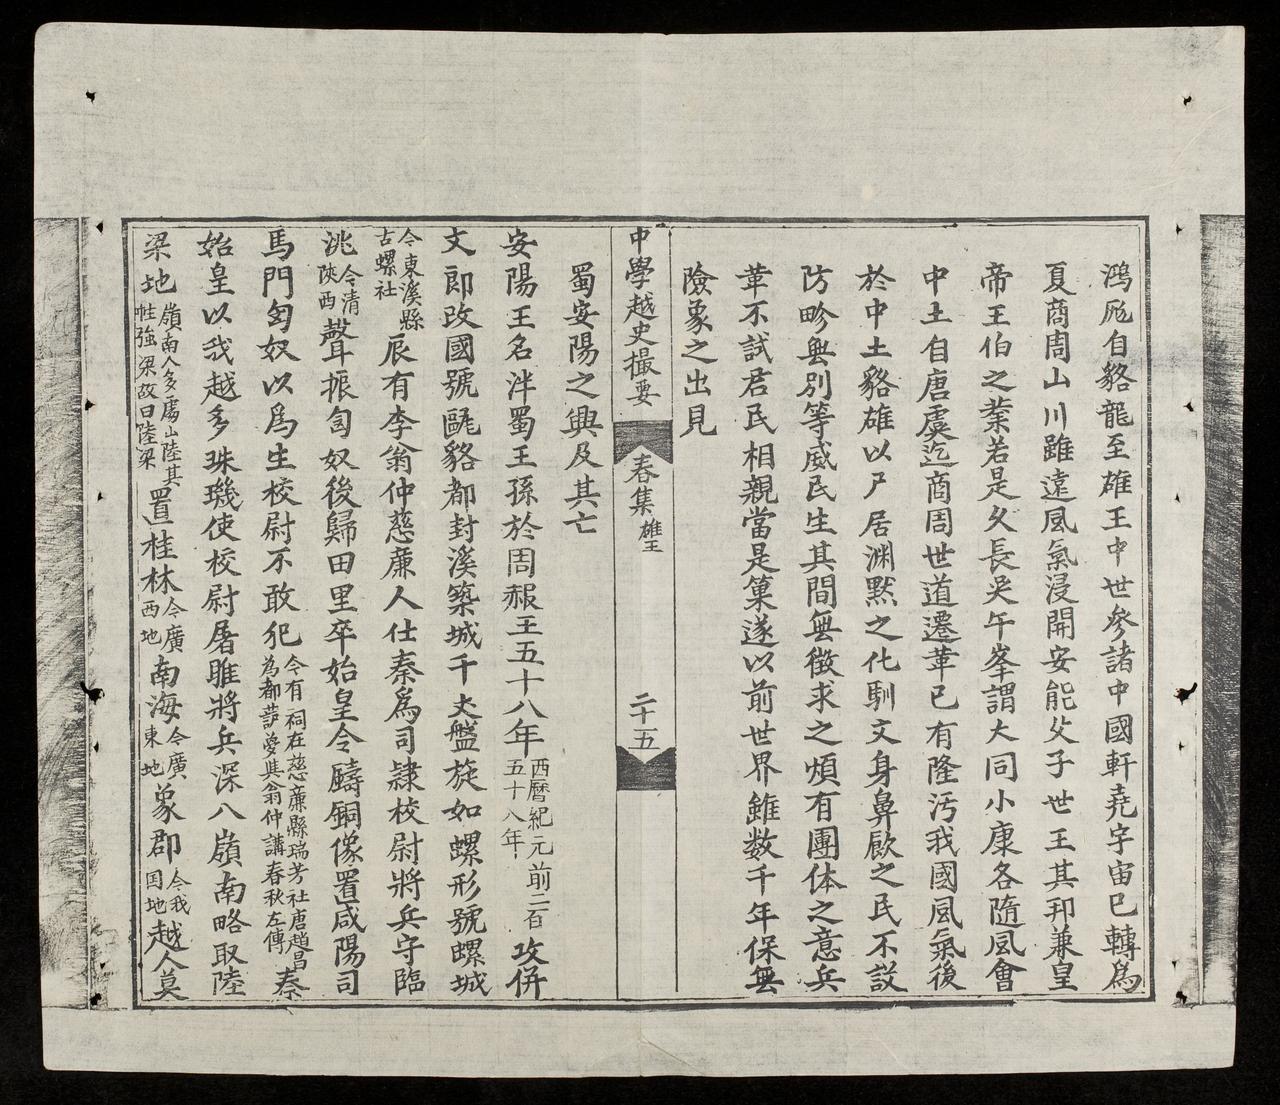 鴻厖自貉龍至雄王中世參諸中國軒堯宇宙已轉為
夏商周山川雖遠風氣浸開安能父子世王其邦兼皇
帝王伯之業若是久長吳午峯謂大同小康各隨風會
中土自唐虞迄商周世道遷革已有隆汚我國風氣後
於中土貉雄以尸居渊黙之化馴文身鼻飮之民不設
防畛無別等威民生其間無徴求之煩有團体之意兵
革不試君民相親當是巢遂以前世界雖数千年保無
險象之出見
中學越史撮要 春集 雄王 二十五
蜀安陽之興及其亡
安陽王名泮蜀王孫於周赧王五十八年西曆紀元前二百五十八年攻併
文郎改國號甌貉都封溪築城千丈盤旋如螺形號螺城
今東溪縣古螺社辰有李翁仲慈廉人仕秦爲司隸校尉將兵守臨
洮今清陝西聲振匈奴後歸田里卒始皇令鑄銅像置咸陽司
馬門匈奴以爲生校尉不敢犯今有祠在慈廉縣瑞芳社唐趙昌為都護夢與翁仲講春秋左傳秦
始皇以我越多珠璣使校尉屠睢將兵深入嶺南略取陸
梁地嶺南人多處山陸其性強梁故曰陸梁置桂林今廣西地南海今廣東地象郡今我国地越人莫